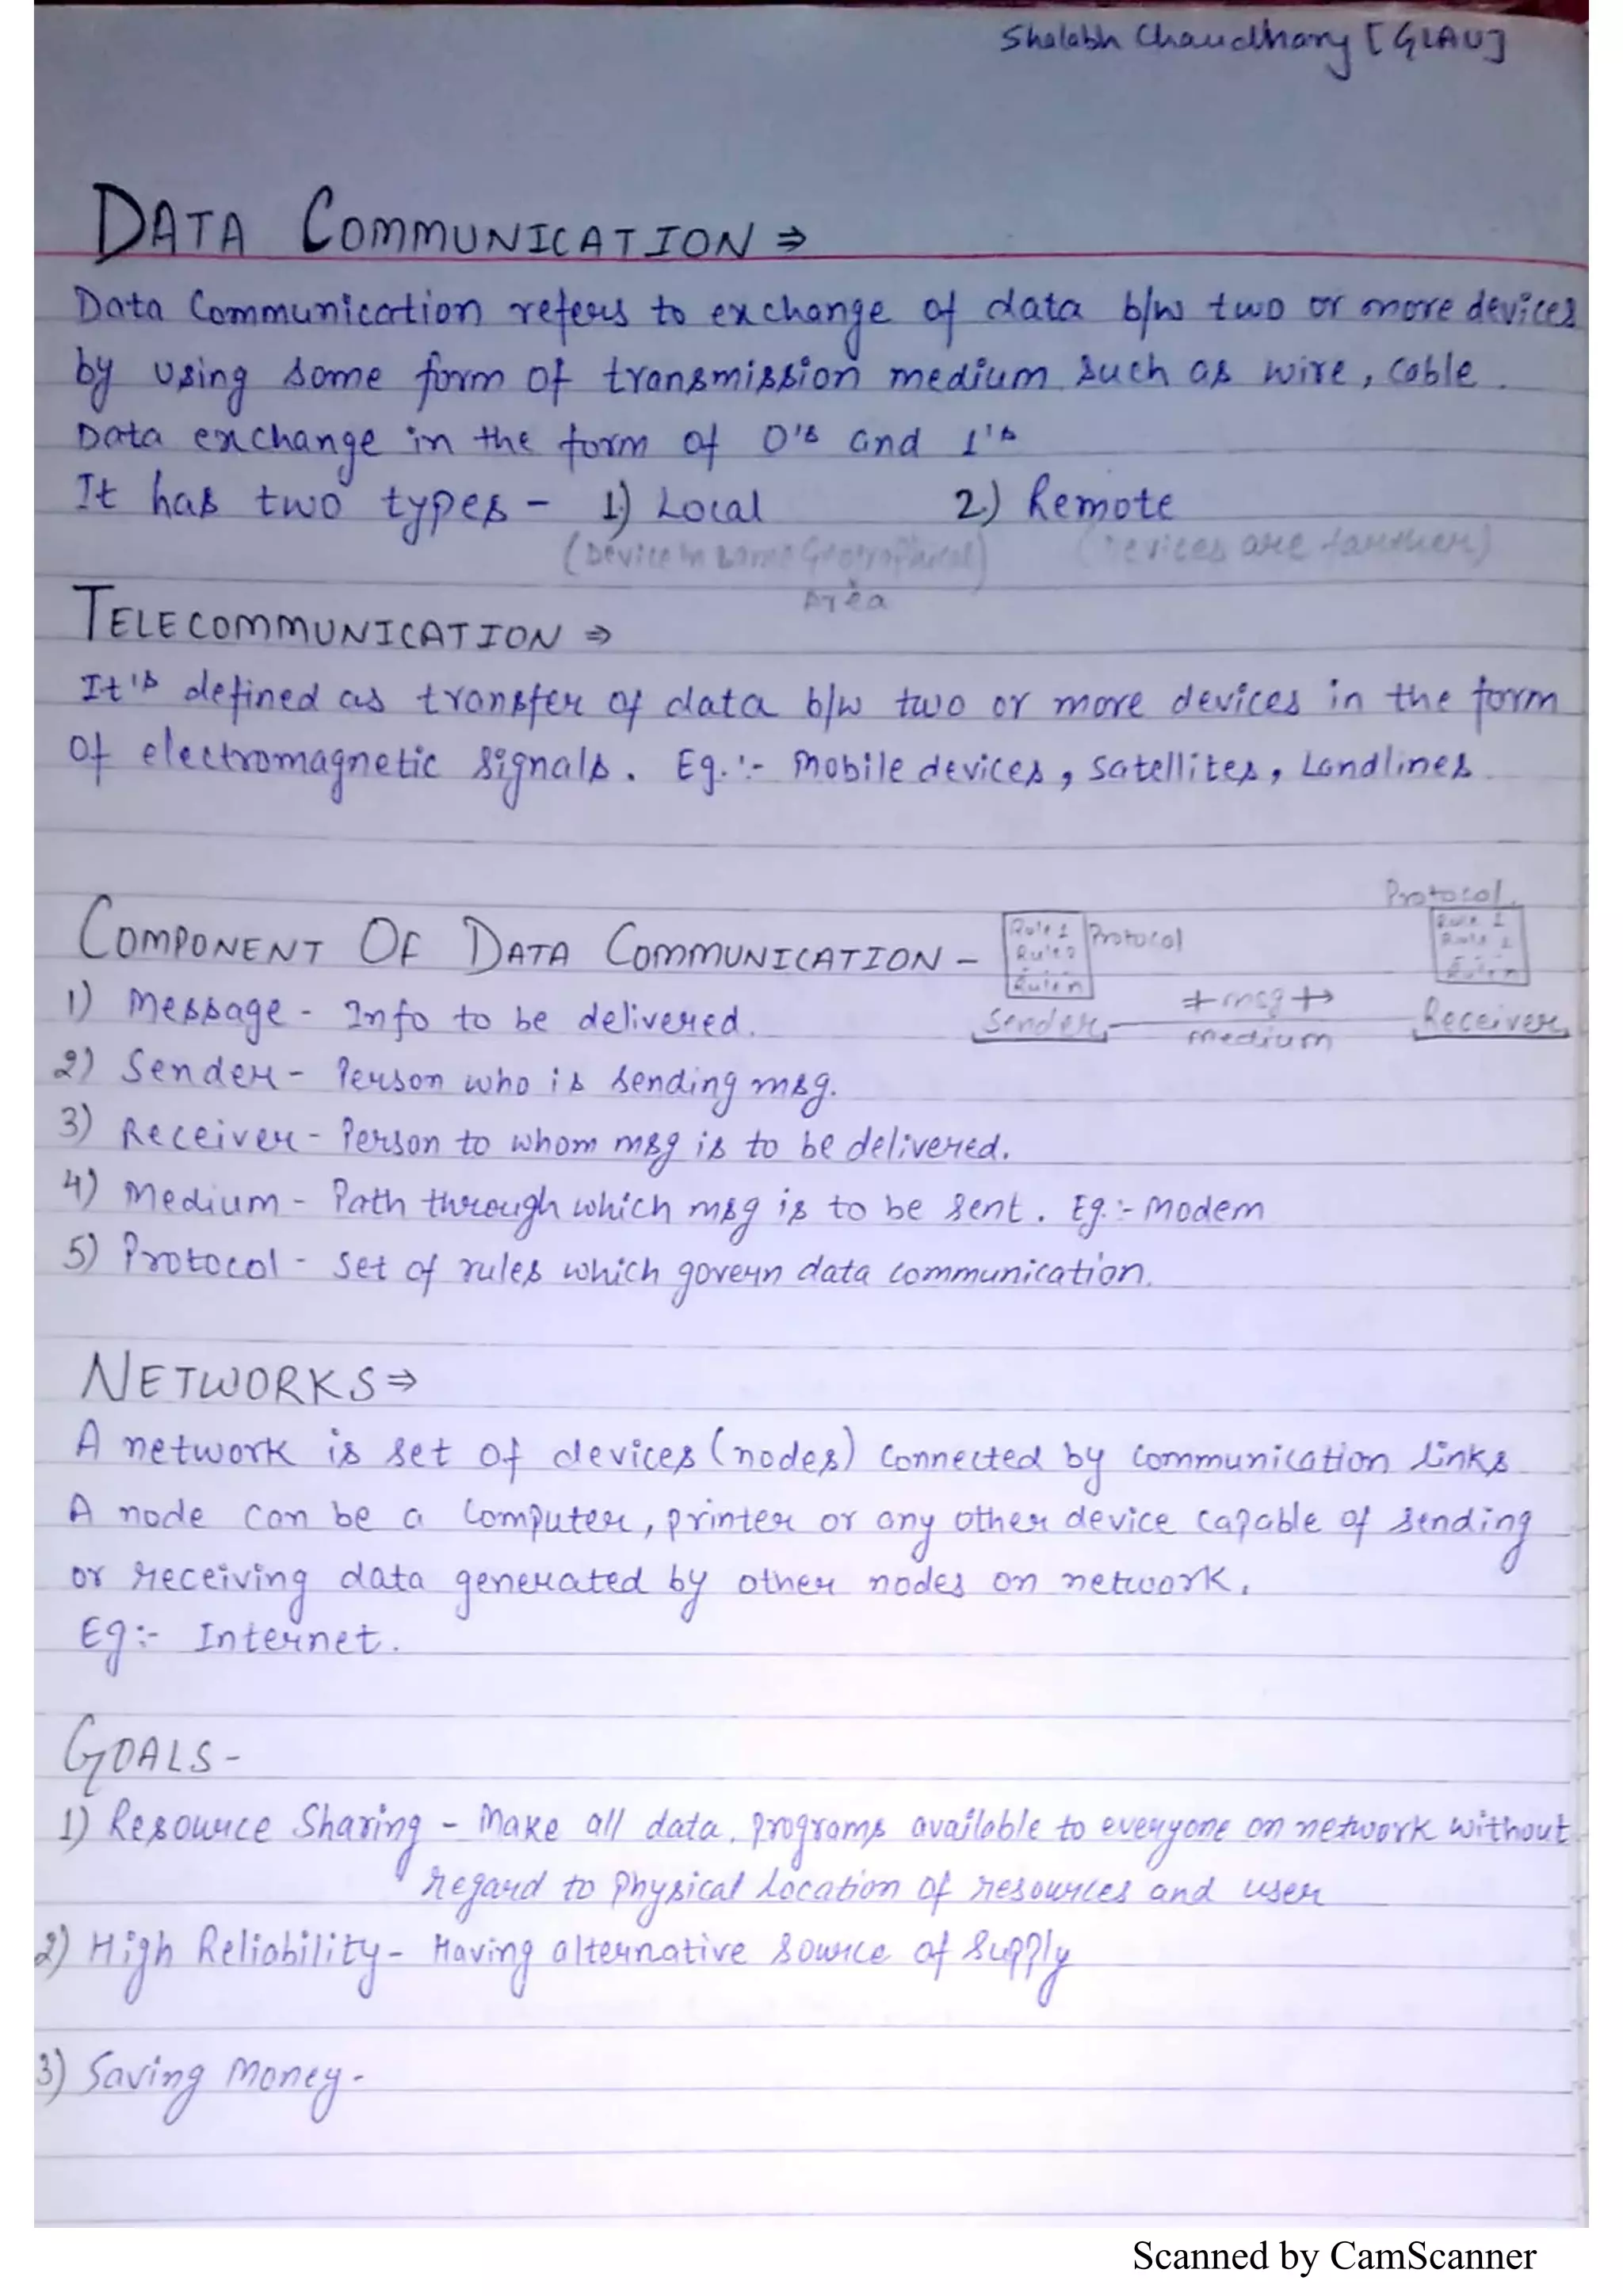 Shalabh Chaudhary [GLAU]
DATA COMMUNICATION ⇒
Data Communication refers to exchange of data b/w two or more devices
by using some form of transmission medium such as wire, cable.
Data exchange in the form of 0's and 1's
It has two types - 1) Local 2.) Remote
(Device in same Geographical) (Devices are farther)
Area
TELECOMMUNICATION ⇒
It's defined as transfer of data b/w two or more devices in the form
of electromagnetic signals. Eg.:- Mobile devices, Satellites, Landlines
Protocol
COMPONENT OF DATA COMMUNICATION -
Rule 1 Protocol Rule 1
Rule 2 Rule 2
Rule n Rule n
1) Message - Info to be delivered.
Sender ← msg → Receiver
medium
2) Sender - Person who is sending msg.
3) Receiver - Person to whom msg is to be delivered.
4) Medium - Path through which msg is to be sent. Eg.:- Modem
5) Protocol - Set of rules which govern data communication.
NETWORKS ⇒
A network is set of devices (nodes) connected by communication links
A node can be a computer, printer or any other device capable of sending
or receiving data generated by other nodes on network.
Eg:- Internet.
GOALS -
1) Resource Sharing - Make all data, programs available to everyone on network without
regard to physical location of resources and user
2) High Reliability - Having alternative source of supply
3) Saving Money -
Scanned by CamScanner